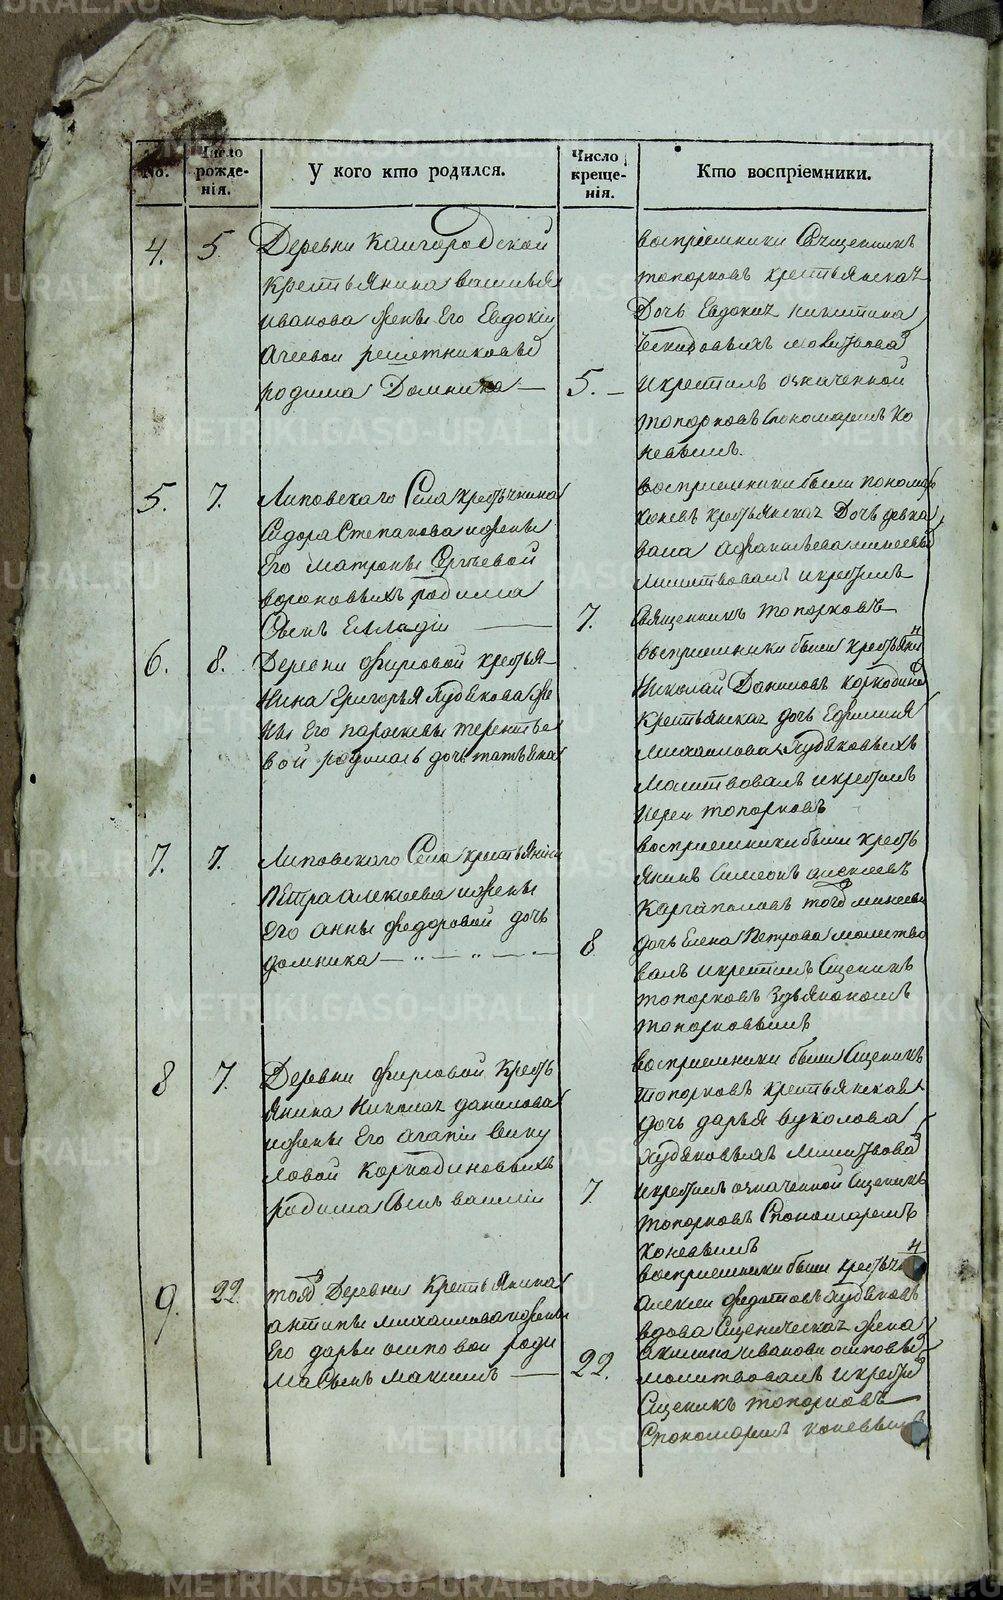 No.
Число рожде-
нія.
У кого кто родился.
Число
креще-
нія.
Кто воспріемники.
4. 5
Деревни Кайгородской
крестьянина Василья
Иванова жены Его Евдокіи
родила Домника
5.
воспріемники Сщценникъ
топорковъ крестьянская
Дочь Евдокия никитина
и крестилъ означенной
топорковъ Спономаремъ Ко
невымъ.
5. 7.
Липовскаго Села крестьянина
Сидора Степанова и жены
Его Матроны Сергѣевой
вороновыхъ родила
Сынъ Елладій
7.
воспріемники были пономарь
коневъ крестьянская Дочь
молитвовалъ и крестилъ
Священникъ топорковъ
6. 8.
Деревни фирсовой крестья-
нина Григорья Худякова же
ны его парасковьи терентье
вой родилась дочь татьяна
воспріемники были крестьянинъ
Николай Даниловъ коркодинов
крестьянская дочь Ефимия
михаилова Худяковыхъ
Молитвовалъ и крестилъ
Иереи топорковъ
7. 7.
Липовского Села крестьянина
Петра алексиева и жены
Его анны федоровой дочь
домника
8
воспріемники были кресть
янинъ Симеонъ алексеевъ
Каргаполовъ того
дочь Елена Петрова молитво
валъ и крестилъ Сщеникъ
топорковъ здьякономъ
топорковымъ
8 7.
Деревни фирсовой кресть
янина Николая данилова
и жены Его агапіи вику
ловой Коркодиновыхъ
родила Сынъ василіи
7
воспріемники были Сщеникъ
топорковъ крестьянская
дочь дарья вуколова
Худяковыхъ
и крестилъ означенной Сщеникъ
топорковъ Спономаремъ
коневымъ
9. 22.
той Деревни Крестьянина
антипы михаилова и жены
Его дарьи осиповои роди
ла Сынъ максимъ
22.
воспріемники были крестьянинъ
Алексеи федотовъ Худяковъ
вдова Сщеническая жена
молитвовалъ и крестил
Сщеникъ топорковъ
Спономаремъ коневымъ
METRIKI.GASO-URAL.RU